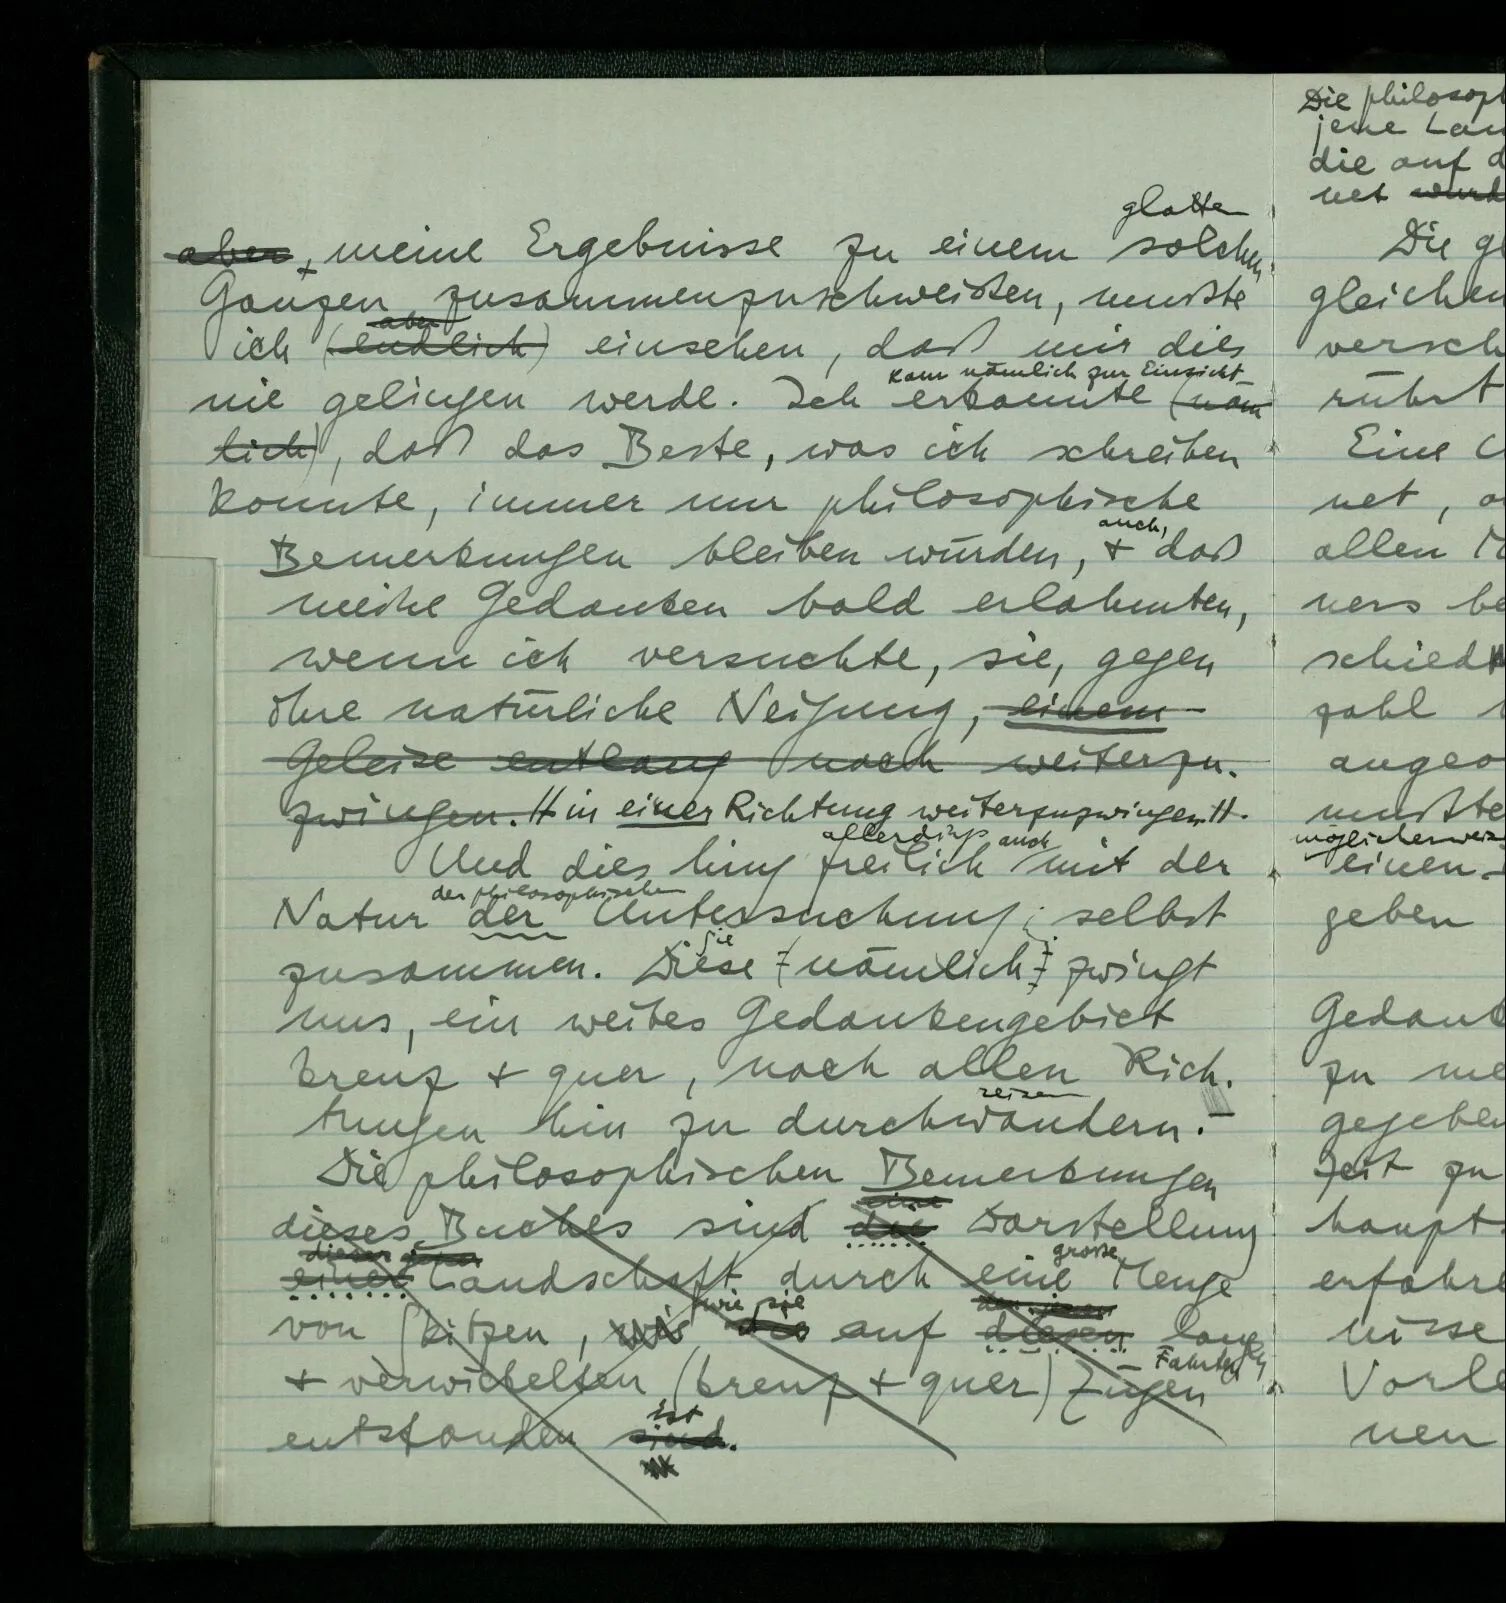 glatten
aber, meine Ergebnisse zu einem solchen
Ganzen zusammenzuschweißen, mußte
aber
ich (endlich) einsehen, daß mir dies
kam nämlich zur Einsicht
nie gelingen werde. Ich erkannte (näm
lich), daß das Beste, was ich schreiben
konnte, immer nur philosophische
auch,
Bemerkungen bleiben würden, + daß
meine Gedanken bald erlahmten,
wenn ich versuchte, sie, gegen
ihre natürliche Neigung, einem
Geleise entlang noch weiterzu-
zwingen. // in einer Richtung weiterzuzwingen.//.
allerdings auch
Und dies hing freilich mit der
der philosophischen
Natur der Untersuchung selbst
Sie
zusammen. Diese (nämlich) zwingt
uns, ein weites Gedankengebiet
kreuz + quer, nach allen Rich-
reisen
tungen hin zu durchwandern.–
Die philosophischen Bemerkungen
eine
dieses Buches sind die Darstellung
dieser
große
einer Landschaft durch eine Menge
wie sie
den jenen
von Skizzen, wie die auf diesen langen
Fahrten
+ verwickelten (kreuz + quer) Zügen
ist
entstanden sind.
Die philosoph
jene Lan
die auf d
net wurd
Die gl
gleichen
versch
rührt
Eine U
net, a
allen M
ners be
schied
zahl
angeo
mußte
möglicherweis
einen
geben
Gedank
zu me
gegeben
Zeit zu
haupt
erfahre
nisse
Vorle
nen